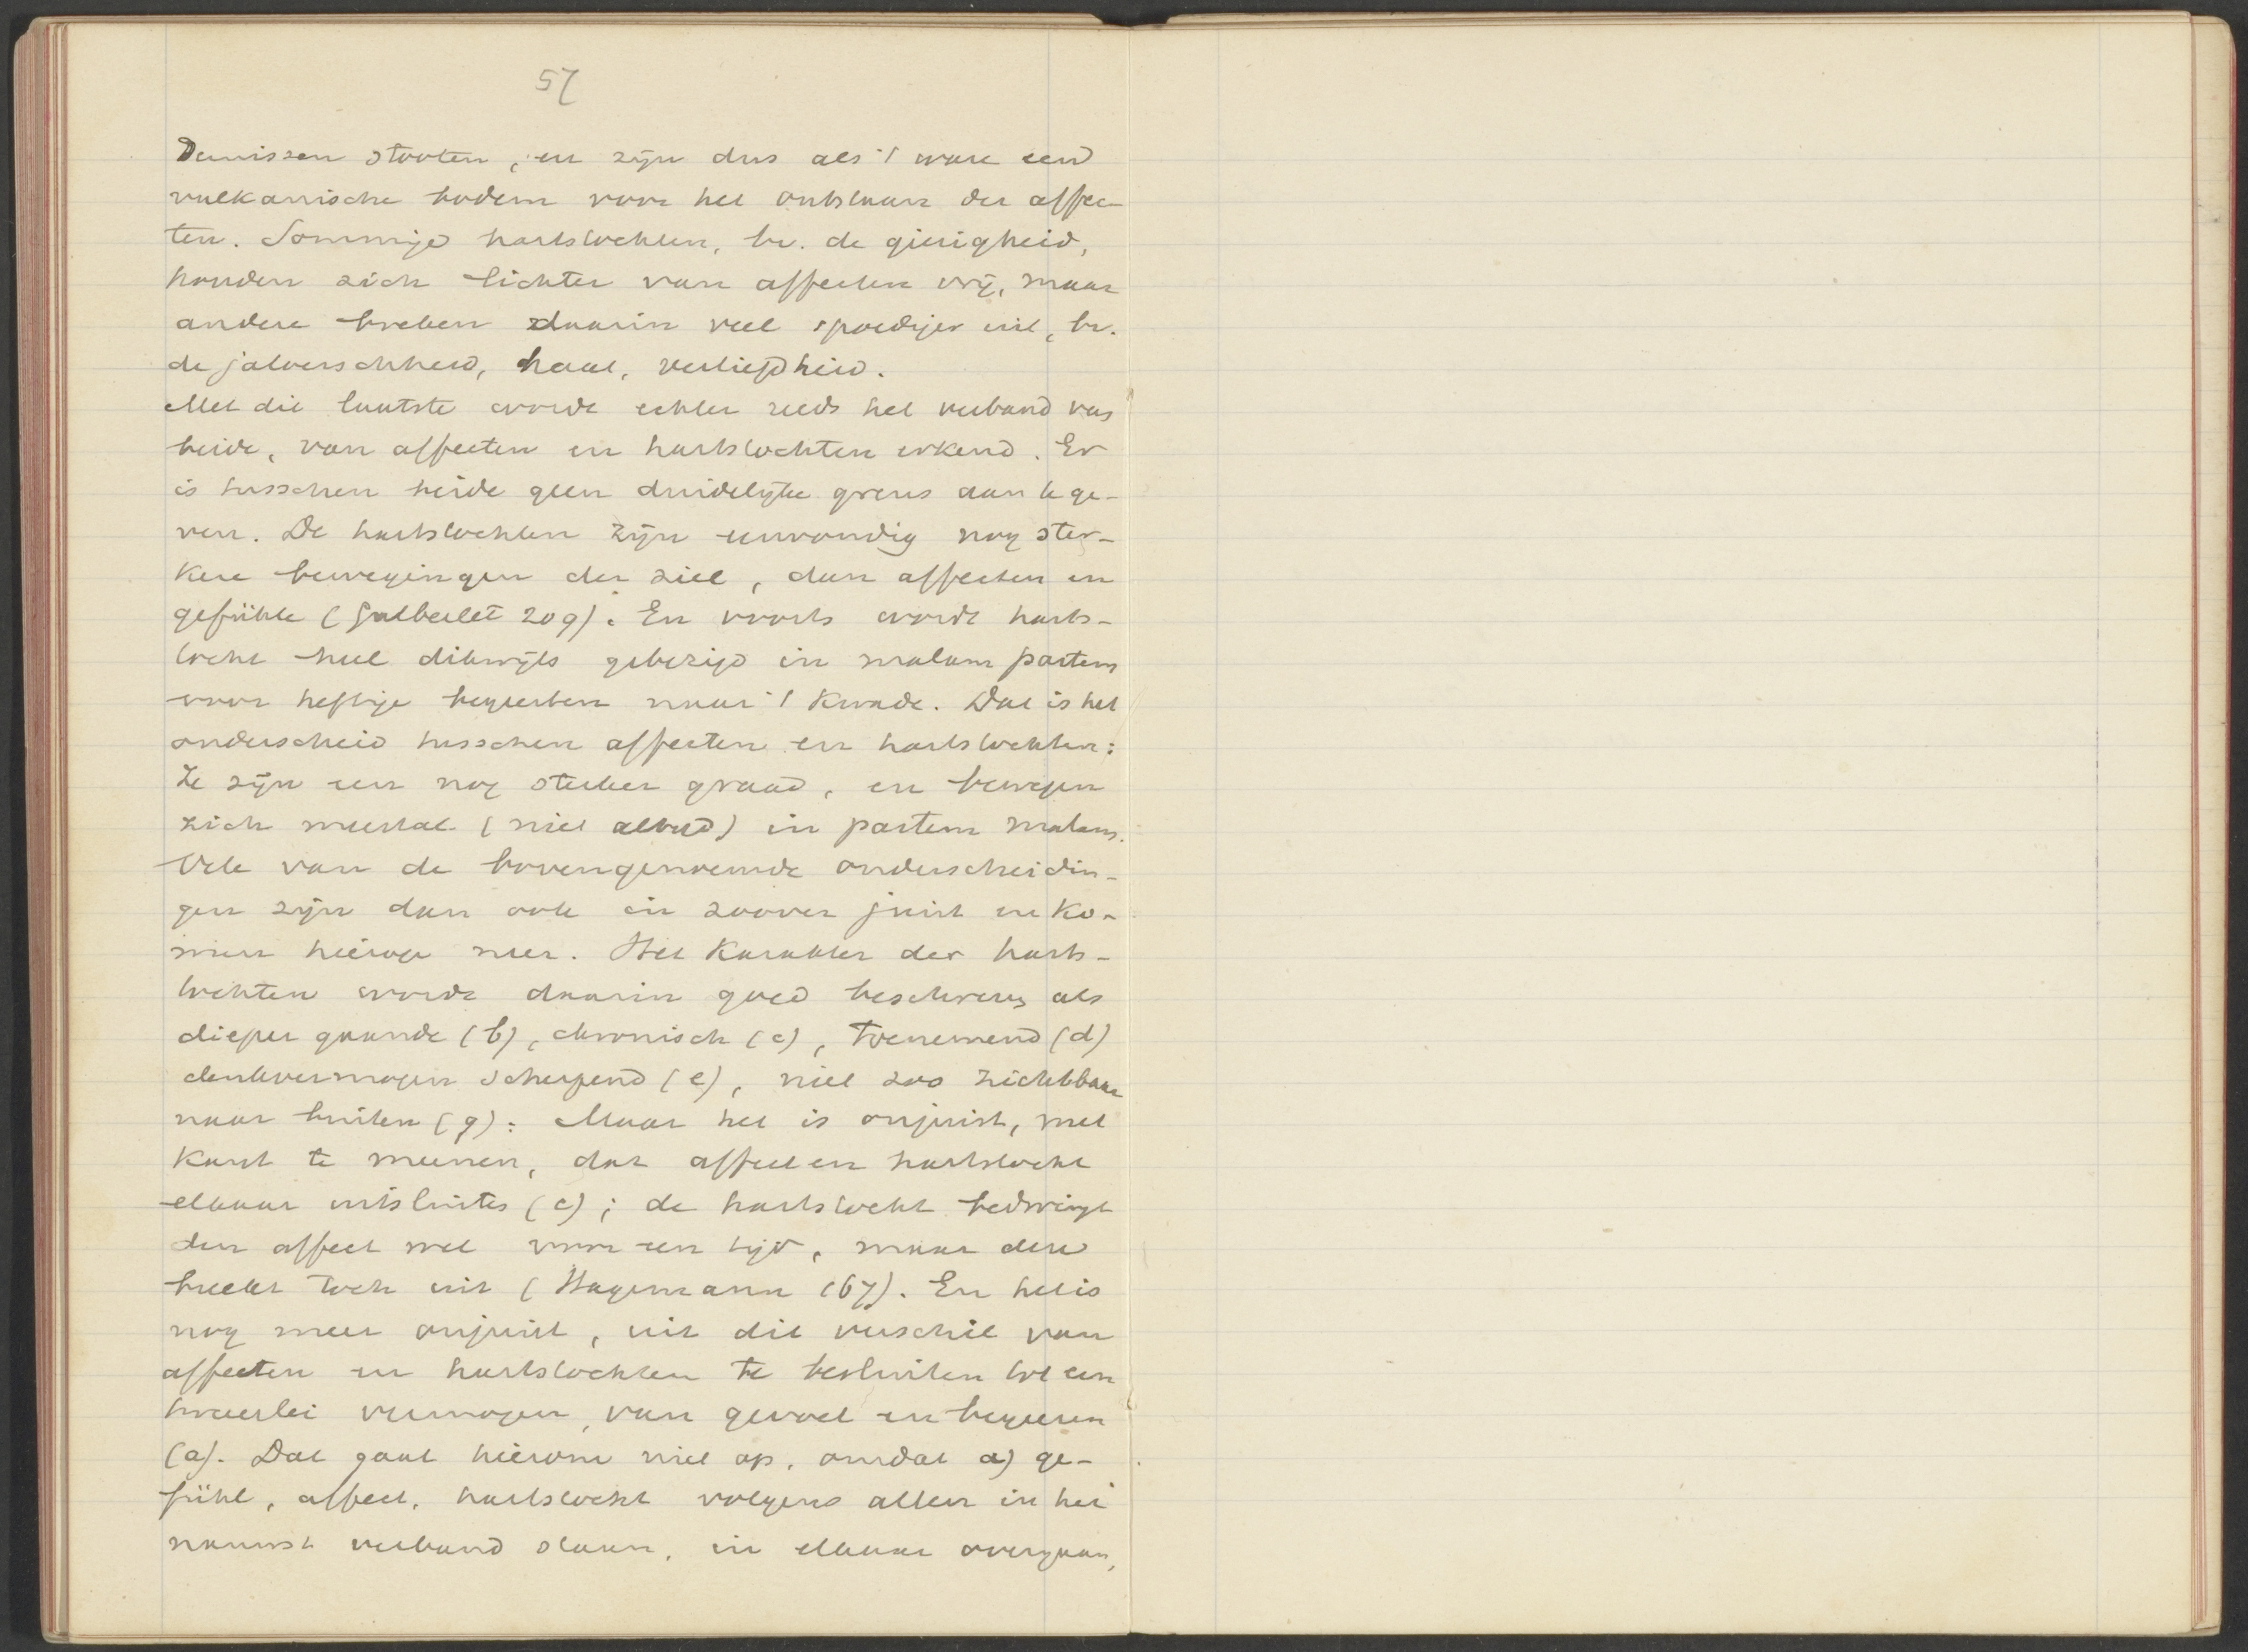 57
dernissen stooten, en zijn dus als 't ware een
vulkanische bodem voor het ontstaan der affec-
ten. Sommige hartstochten, bv. de gierigheid,
houden zich lichter van affecten vrij, maar
andere breken daarin veel spoediger uit, bv.
de jaloerschheid, haat, verliefdheid.
Met dit laatste wordt echter reeds het verband van
beide, van affecten en hartstochten erkend. Er
is tusschen beide geen duidelijke grens aan te ge-
ven. De hartstochten zijn eenvoudig nog ster-
kere bewegingen der ziel, dan affecten en
gefühle (Gutberlet 209). En voorts wordt harts-
tocht heel dikwijls gebezigd in malam partem
voor heftige begeerten naar 't kwade. Dat is het
onderscheid tusschen affecten en hartstochten:
Ze zijn een nog sterker graad, en bewegen
zich meestal (niet altijd) in partem malam.
Vele van de bovengenoemde onderscheidin-
gen zijn dan ook in zoover juist en ko-
men hierop neer. Het karakter der harts-
tochten wordt daarin goed beschreven als
dieper gaande (b), chronisch (c), toenemend (d)
denkvermogen scherpend (e), niet zoo zichtbaar
naar buiten (g). Maar het is onjuist, met
Kant te meenen, dat affect en hartstocht
elkaar uitsluiten (c); de hartstocht bedwingt
den affect wel voor een tijd, maar deze
breekt toch uit (Hagemann 167). En het is
nog meer onjuist, uit dit verschil van
affecten en hartstochten te besluiten tot een
tweeërlei vermogen, van gevoel en begeeren
(a). Dat gaat hierom niet op, omdat a) ge-
fühl, affect, hartstocht volgens allen in het
nauwst verband staan, in elkaar overgaan,